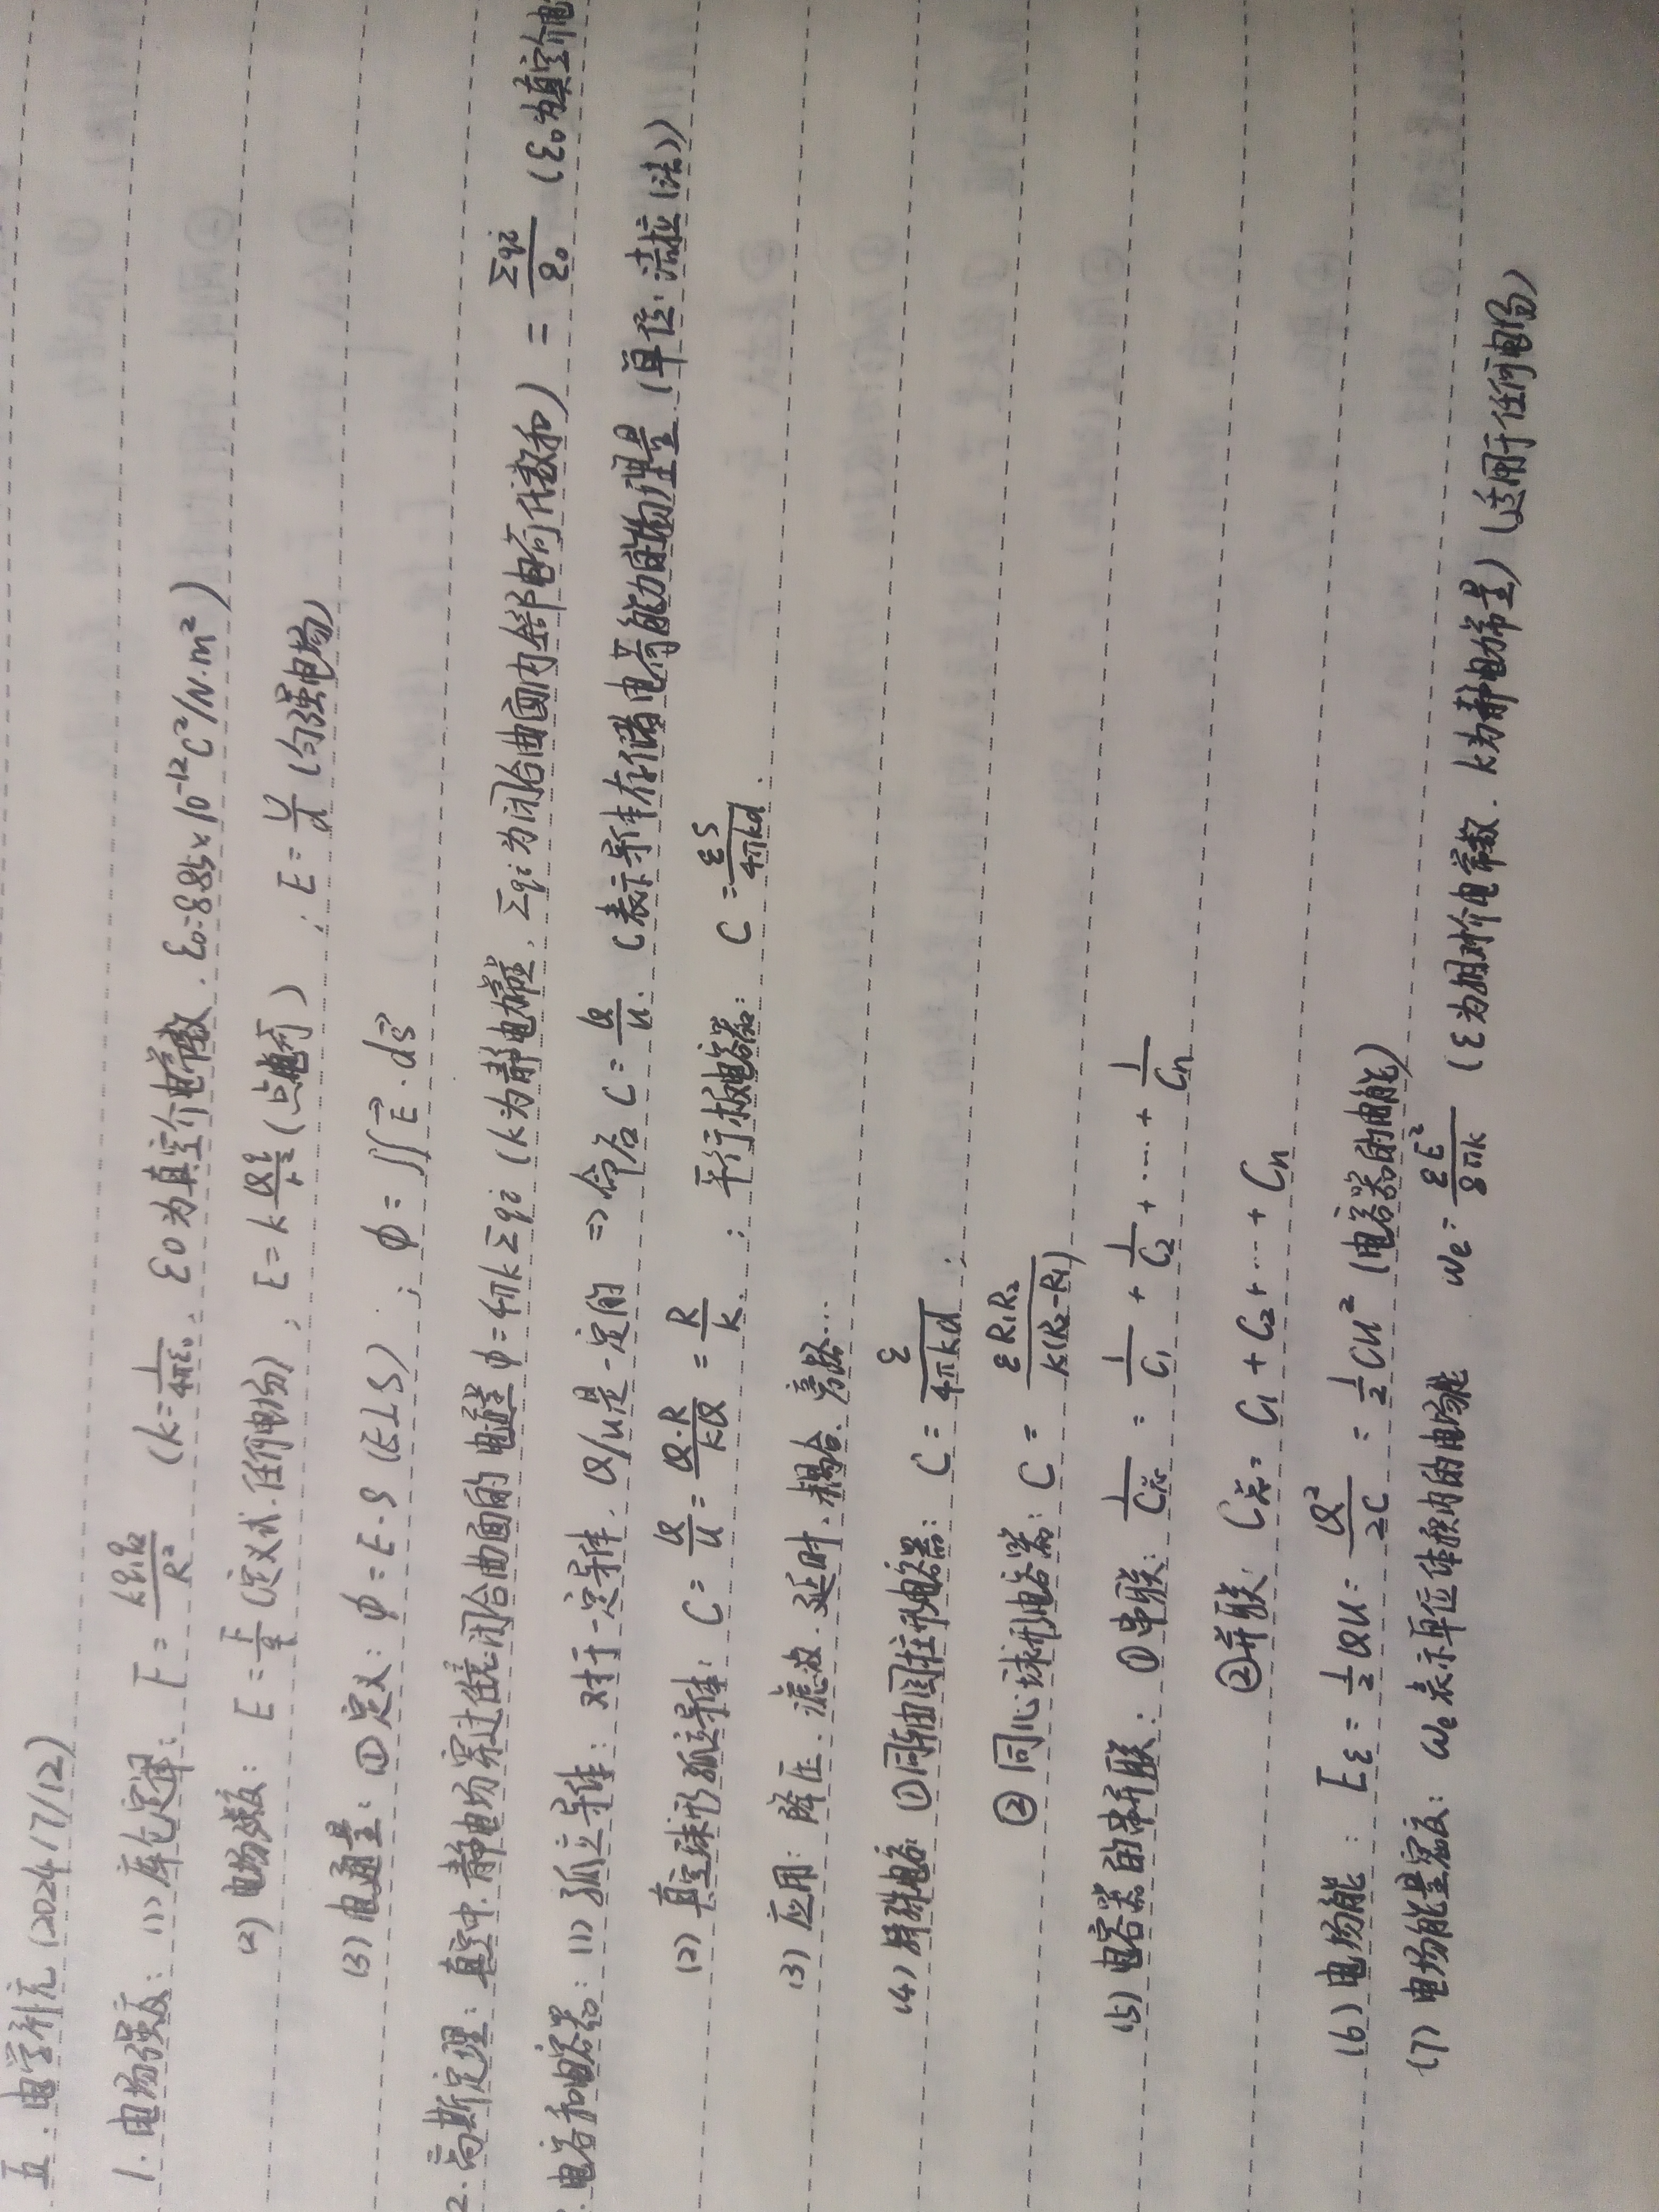 五、电学补充 (2024/7/12)
1. 电场强度: (1) 库仑定律: F = kq₁q₂/R² (k=1/4πε₀, ε0为真空介电常数, ε₀=8.85×10⁻¹²C²/N·m²)
(2) 电场强度: E = F/q (定义式、任何电场); E = kQ/r² (点电荷); E = U/d (匀强电场)
(3) 电通量: ① 定义: φ = E·S (E⊥S); φ = ∬E⃗·dS⃗
2. 高斯定理: 真空中、静电场穿过任意闭合曲面的电通量φ=4πkΣqi (k为静电常量, Σqi为闭合曲面内全部电荷代数和) = Σqi/ε₀ (ε₀为真空介电
电容和电容器: (1) 孤立导体: 对于一定导体, Q/u是一定的 ⇒ 命名 C = Q/u. C表示导体存储电荷能力的物理量 (单位: 法拉 (法))
(2) 真空球形孤立导体: C = Q/u = Q·R/kQ = R/k. ; 平行板电容器: C = εS/4πkd.
(3) 应用: 降压、滤波、延时、耦合、旁路…
(4) 特殊电容 ①同轴圆柱形电容器: C = ε/4πkd ;
② 同心球形电容器: C = εR₁R₂/k(R₂-R₁)
(5) 电容器的串并联: ①串联: 1/C总 = 1/C₁ + 1/C₂ + …… + 1/Cn
②并联: C总 = C₁ + C₂ + …… + Cn
(6) 电场能: Eε = 1/2 QU = Q²/2C = 1/2 CU² (电容器的电能)
(7) 电场能量密度: We表示单位体积内的电场能 We = εE²/8πk (ε为相对介电常数. k为静电常量) (适用于任何电场)